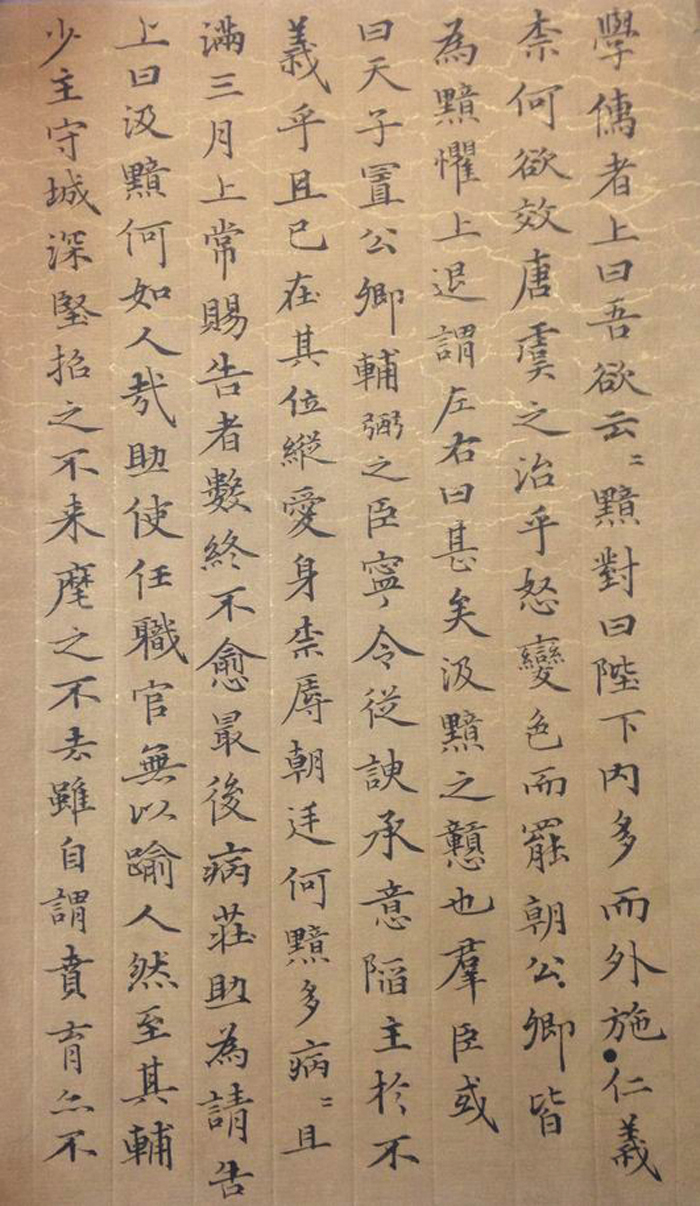 學儒者上曰吾欲云〻黯對曰陛下内多而外施仁義
柰何欲效唐虞之治乎怒變色而罷朝公卿皆
為黯懼上退謂左右曰甚矣汲黯之戇也羣臣或
曰天子置公卿輔弼之臣寧令從諛承意陷主扵不
義乎且已在其位縱愛身柰辱朝廷何黯多病〻且
滿三月上常賜告者數終不愈最後病莊助為請告
上曰汲黯何如人㦲助使任職官無以踰人然至其輔
少主守城深堅招之不来麾之不去雖自謂賁育亦不